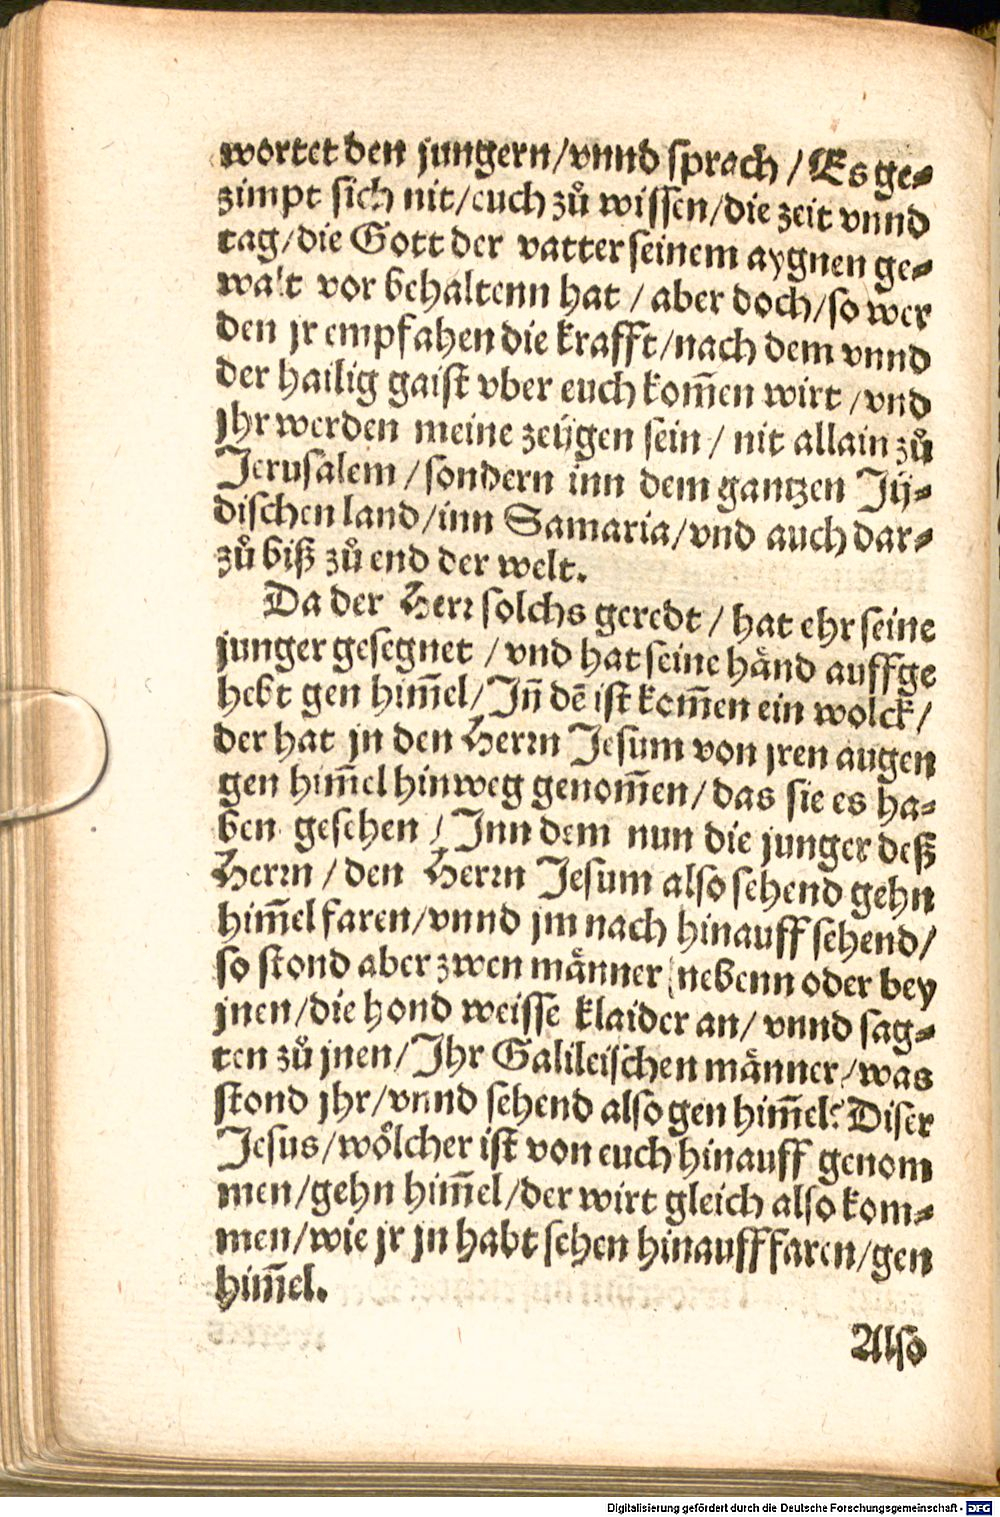 wortet den jungern/vnnd sprach/Es ge⸗
zimpt sich nit/euch zuͦ wissen/die zeit vnnd
tag/die Gott der vatter seinem aygnen ge⸗
walt vor behaltenn hat/aber doch/so wer
den jr empfahen die krafft/nach dem vnnd
der hailig gaist vber euch kom̃en wirt/vnd
jhr werden meine zeügen sein/nit allain zuͦ
Jerusalem/sondern inn dem gantzen Jü⸗
dischen land/inn Samaria/vnd auch dar⸗
zuͦ biß zuͦ end der welt.
Da der Herr solchs geredt/hat ehr seine
junger gesegnet/vnd hat seine händ auffge
hebt gen him̃el/Jñ dẽ ist kom̃en ein wolck/
der hat jn den Herrn Jesum von jren augen
gen him̃el hinweg genom̃en/das sie es ha⸗
ben gesehen/Inn dem nun die junger deß
Herrn/den Herrn Jesum also sehend gehn
him̃el faren/vnnd jm nach hinauff sehend/
so stond aber zwen männer/nebenn oder bey
jnen/die hond weisse klaider an/vnnd sag⸗
ten zuͦ jnen/Ihr Galileischen männer/was
stond jhr/vnnd sehend also gen him̃el? Diser
Jesus/wölcher ist von euch hinauff genom
men/gehn him̃el/der wirt gleich also kom⸗
men/wie jr jn habt sehen hinauff faren/gen
him̃el.
Also
Digitalisierung gefördert durch die Deutsche Forschungsgemeinschaft - DFG